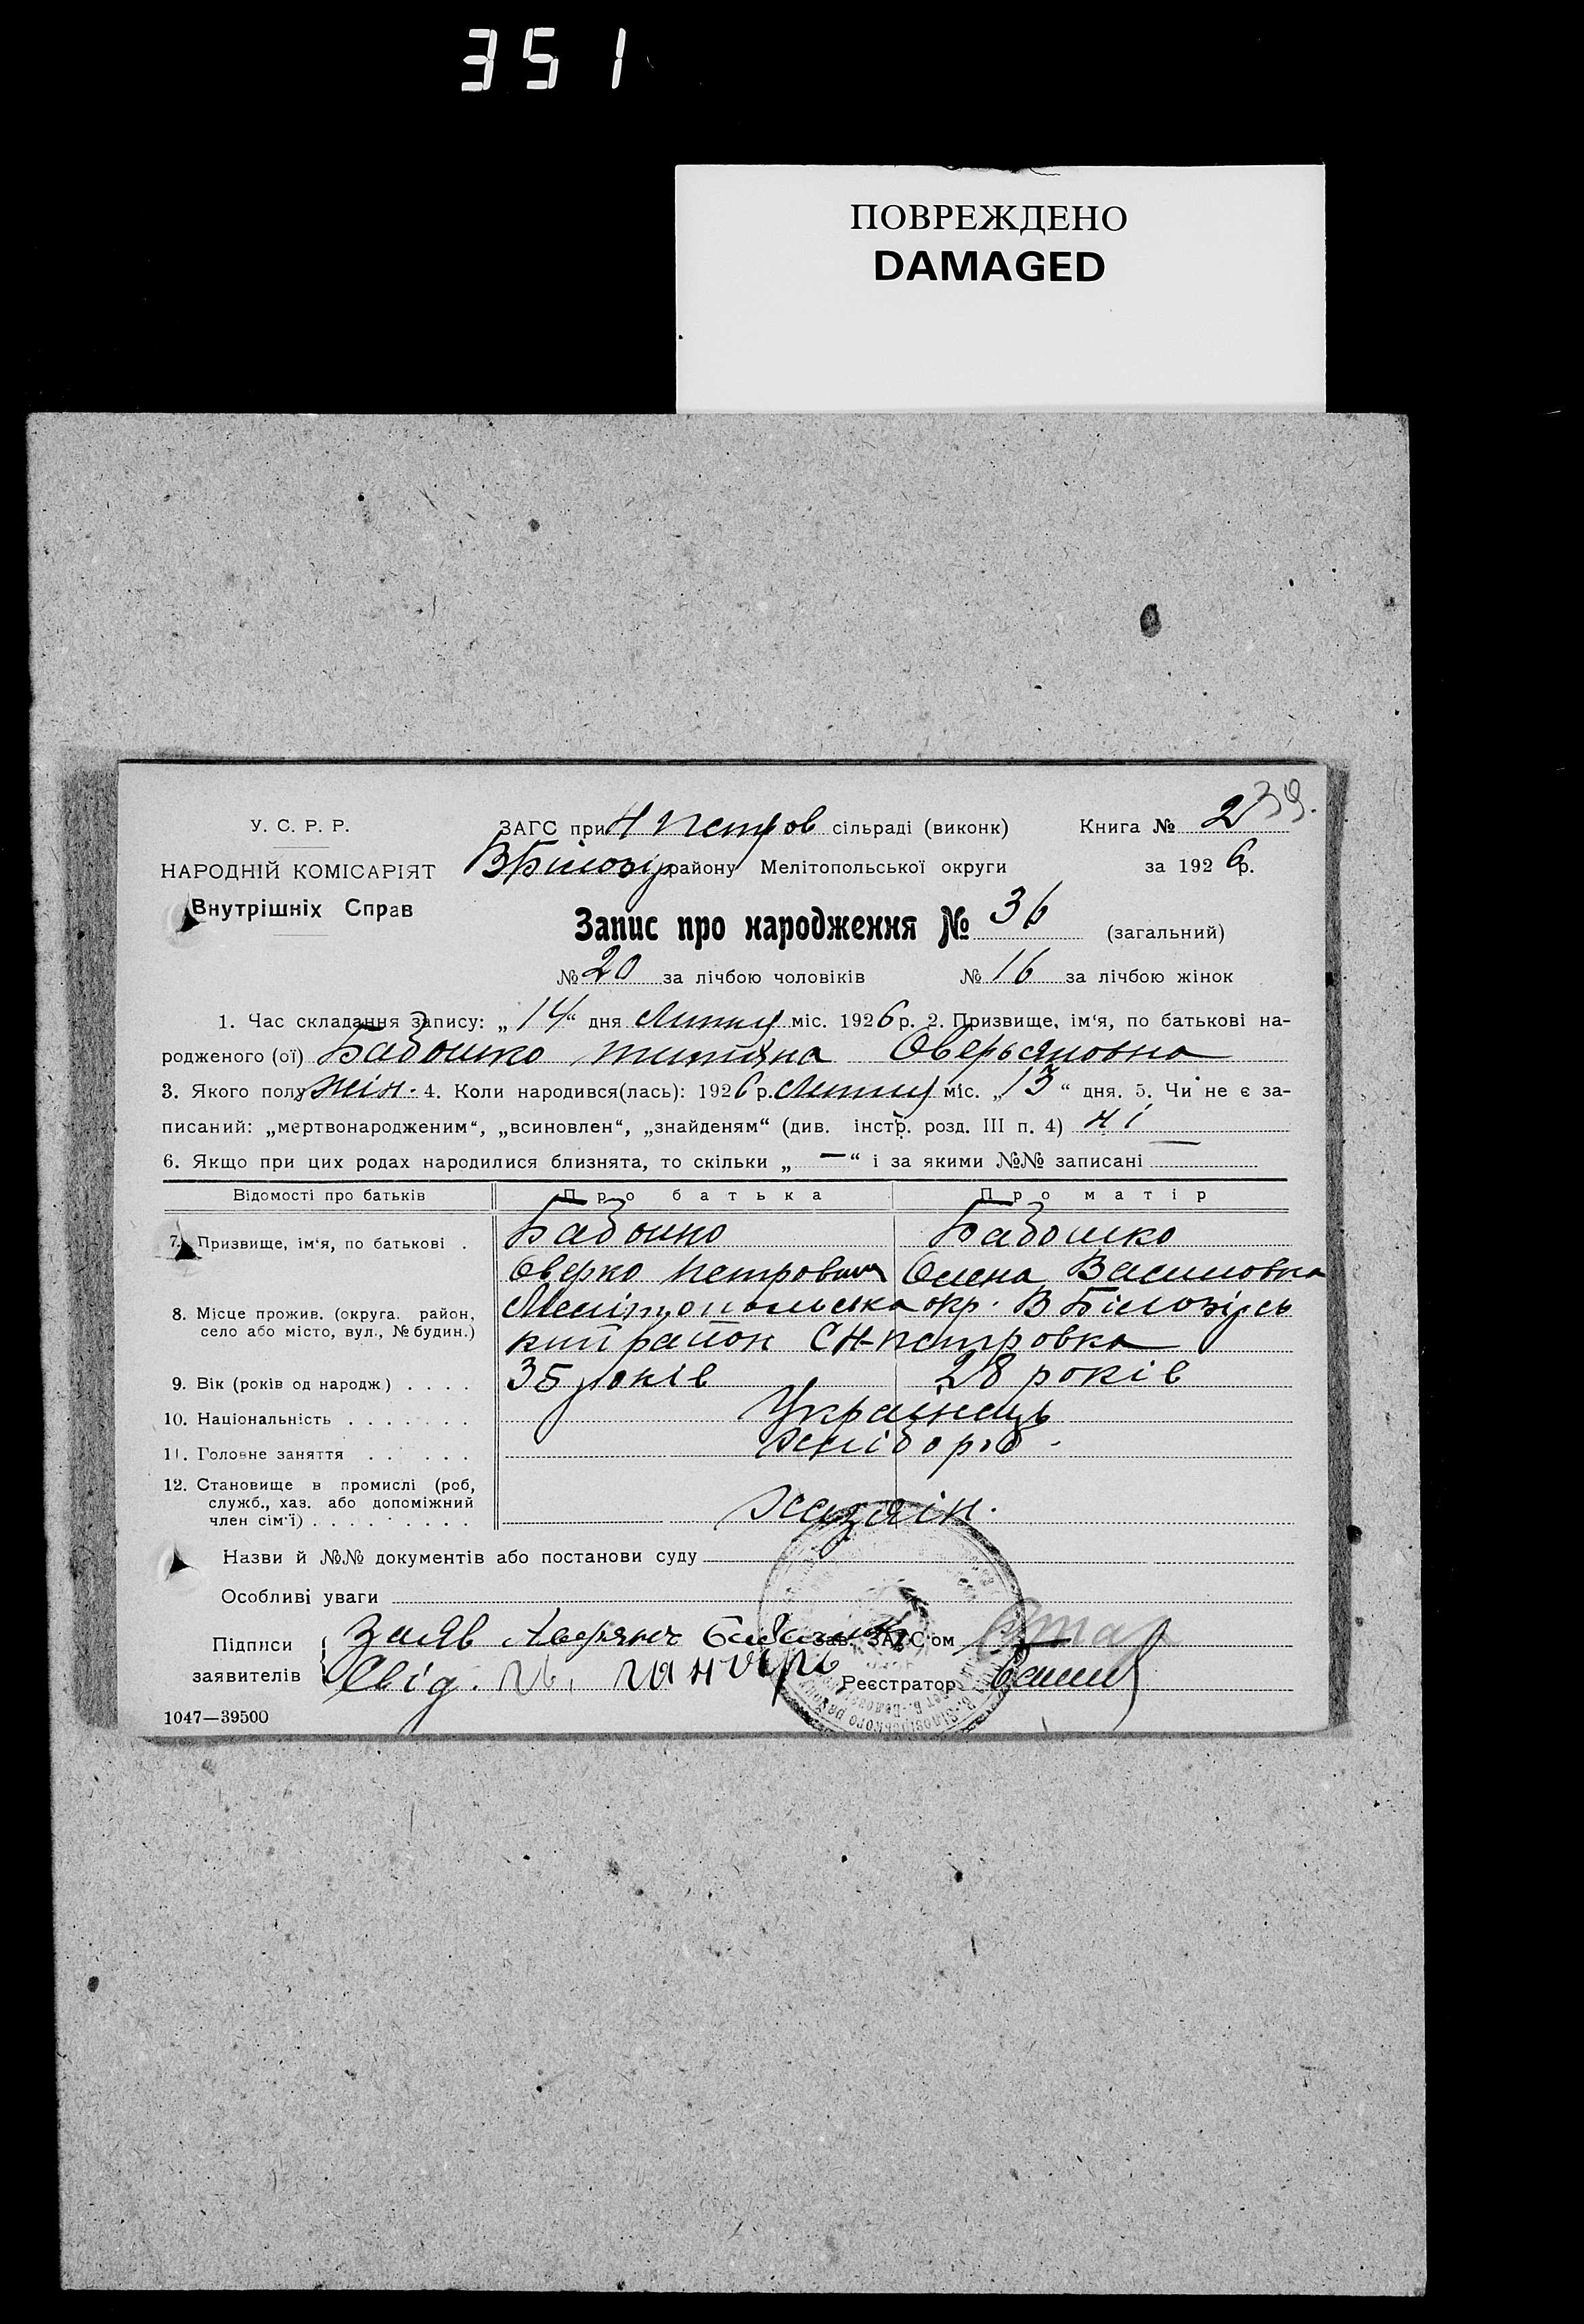 351
ПОВРЕЖДЕНО
DAMAGED
39.
У. С. Р. Р.
НАРОДНІЙ КОМІСАРІЯТ
Внутрішніх Справ
ЗАГС при Н Петров сільраді (виконк) Книга № 2
ВБілозір району Мелітопольської округи за 1926 р.
Запис про народження № 36 (загальний)
№ 20 за лічбою чоловіків № 16 за лічбою жінок
1. Час складання запису: „14“ дня Липня міс. 1926 р. 2. Призвище, ім‘я, по батькові на-
родженого (ої) Бабошко Титяна Оверьяновна
3. Якого полу жін. 4. Коли народився(лась): 1926 р. Липня міс. „13“ дня. 5. Чи не є за-
писаний: „мертвонародженим“, „всиновлен“, „знайденям“ (див. інстр. розд. III п. 4) ні
6. Якщо при цих родах народилися близнята, то скільки „—“ і за якими №№ записані
Відомості про батьків Про батька Про матір
7. Призвище, ім‘я, по батькові . Бабошко Бабошко
Оверко Петрович Олена Василовна
8. Місце прожив. (округа, район, село або місто, вул., № будин.) Мелітопольська окр. В Білозірсь
кий район С Н-Петровка
9. Вік (років од народж) . . . . 35 років 28 років
10. Національність . . . . . . . Українець
11. Головне заняття . . . . . . хлібороб.
12. Становище в промислі (роб,
служб., хаз. або допоміжний
член сім‘ї) . . . . . . . . . Хазяін.
Назви й №№ документів або постанови суду
Особливі уваги
Підписи заявителів Заяв Аверянъ Бабошко Зав. ЗАГС‘ом
Свід. Реєстратор
1047—39500